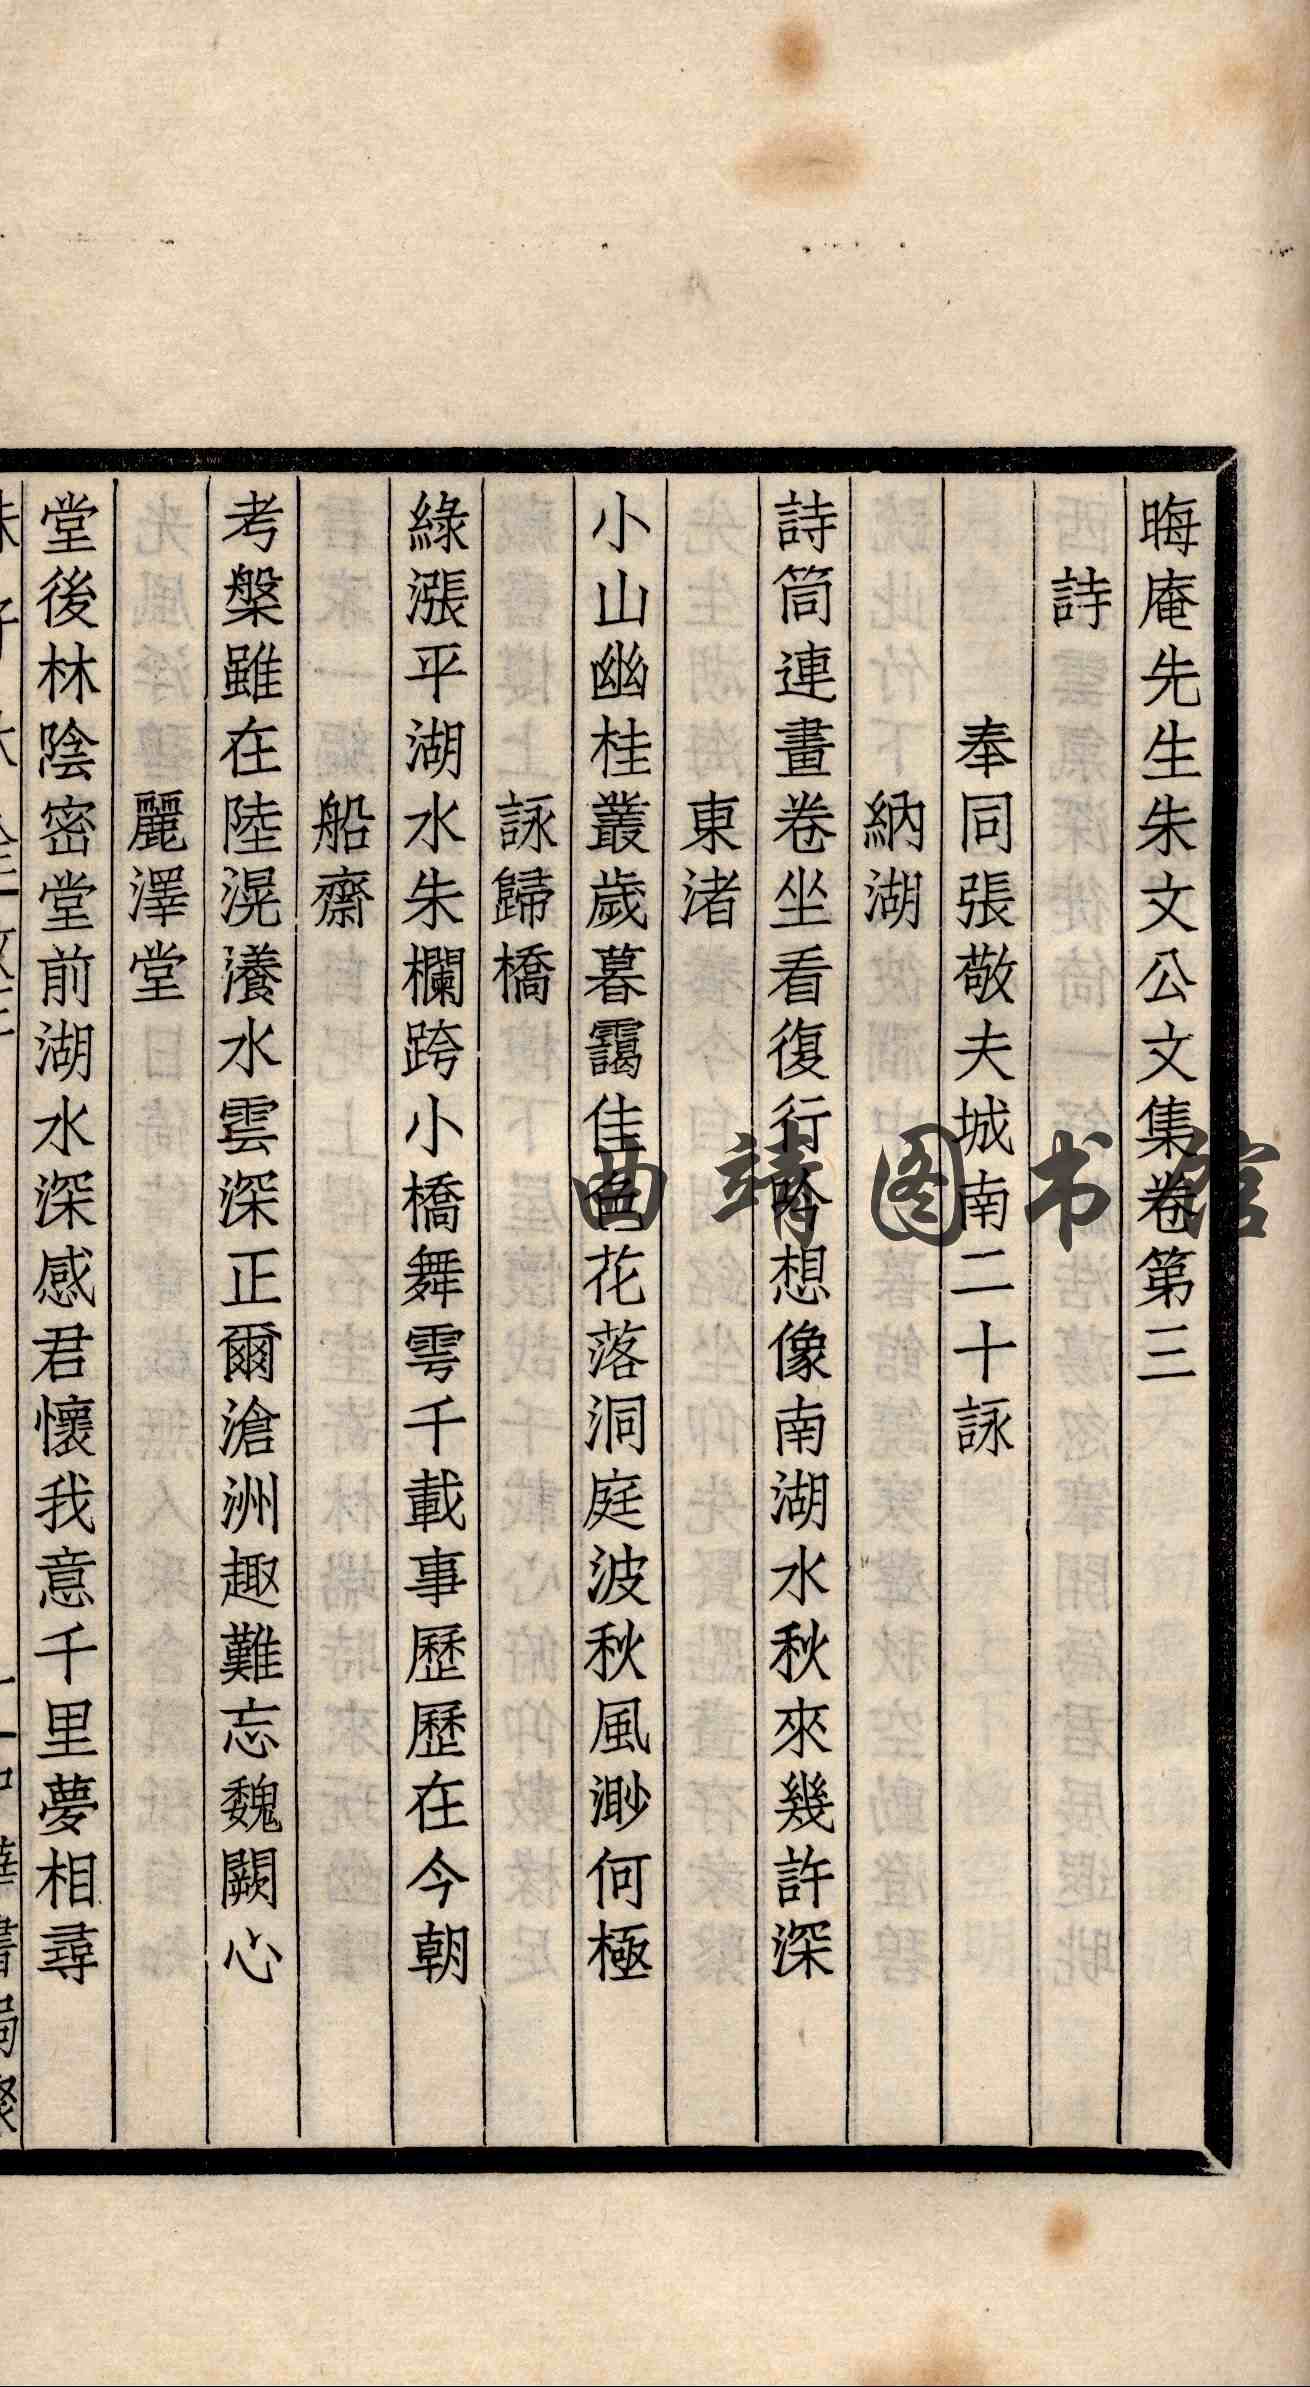 晦庵先生朱文公文集卷第三
詩
奉同張敬夫城南二十詠
納湖
詩筒連畫卷坐看復行吟想像南湖水秋來幾許深
東渚
小山幽桂叢歲暮靄佳色花落洞庭波秋風渺何極
詠歸橋
綠漲平湖水朱欄跨小橋舞雩千載事歷歷在今朝
船齋
考槃雖在陸滉瀁水雲深正爾滄洲趣難忘魏闕心
麗澤堂
堂後林陰密堂前湖水深感君懷我意千里夢相尋
曲靖图书馆